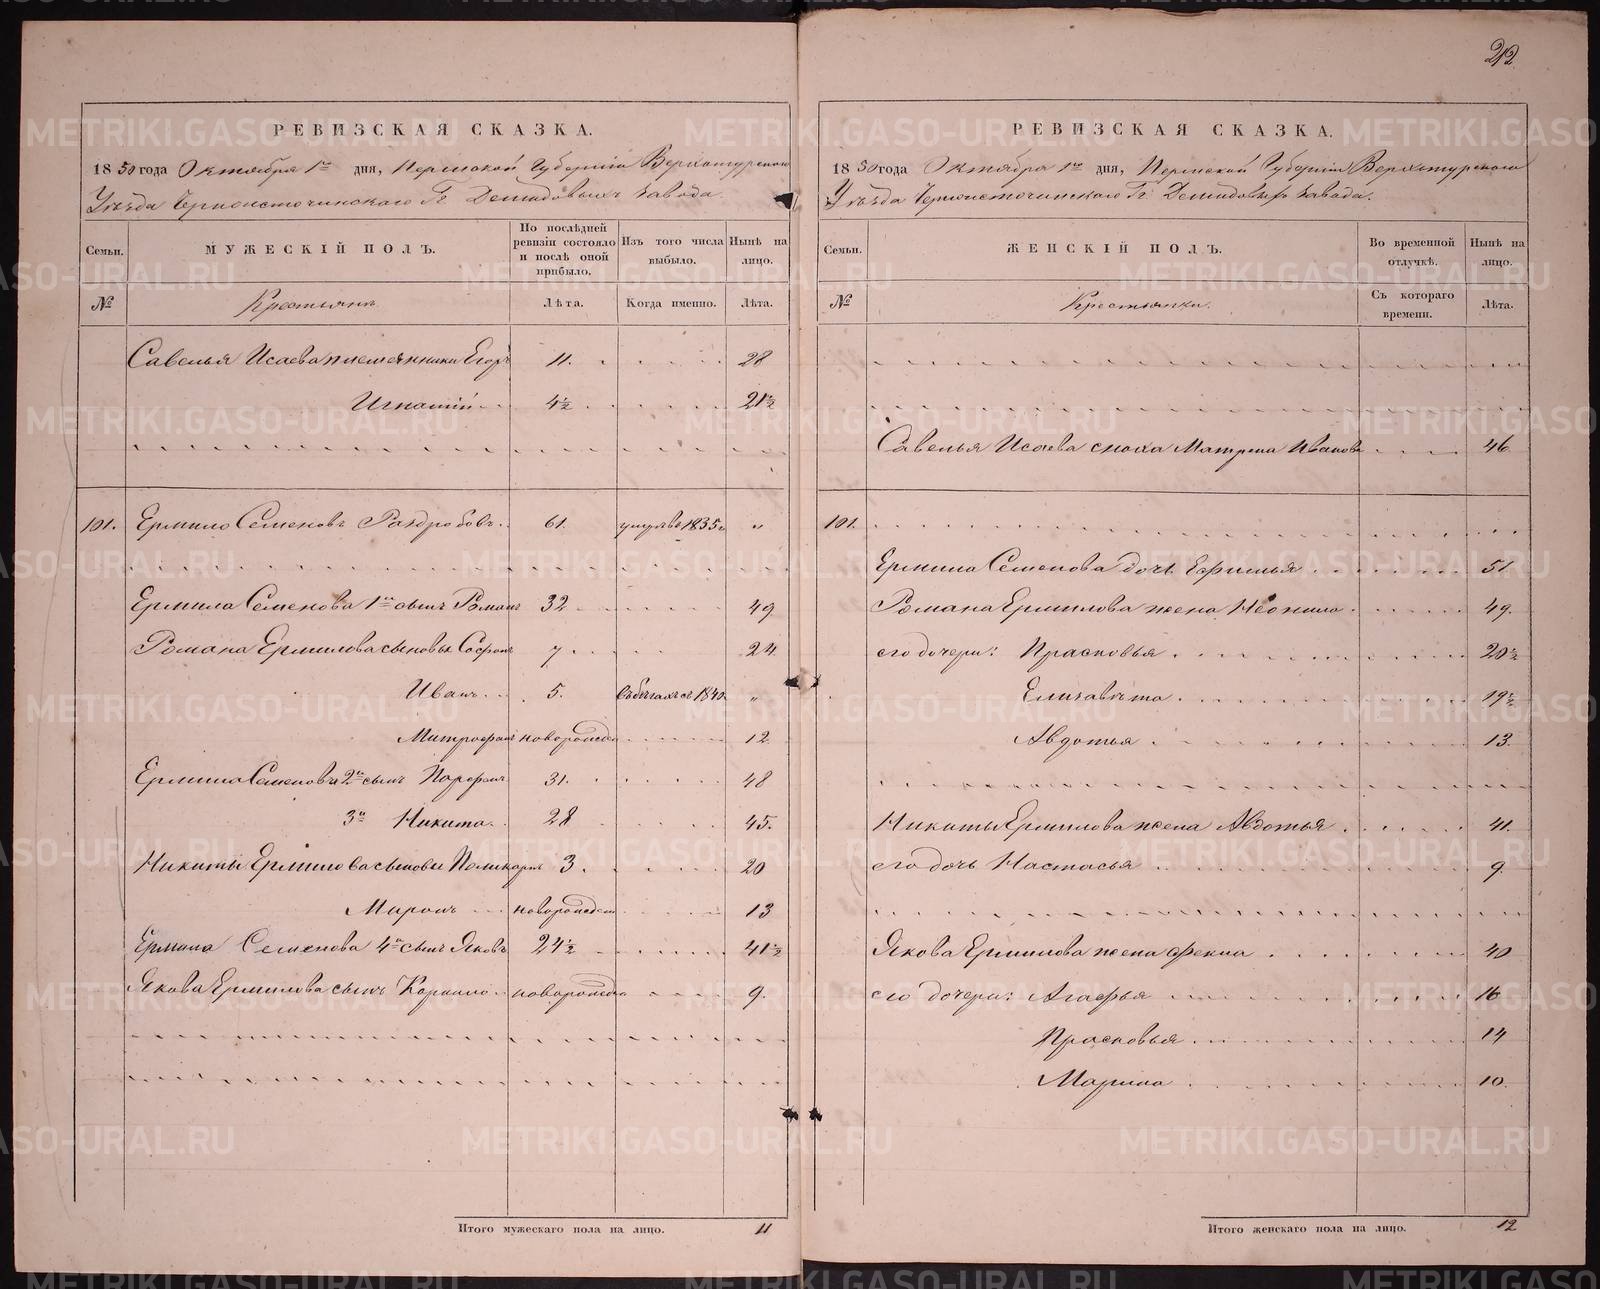 212
РЕВИЗСКАЯ СКАЗКА.
1850 года Октября 1го дня, Пермской Губернiи Верхотурского
Уѣзда Черноисточинского Гг. Демидовыхъ завода.
Семьи.
МУЖЕСКІЙ ПОЛЪ.
По послѣдней ревизіи состояло и послѣ оной прибыло.
Изъ того числа выбыло.
Нынѣ на лицо.
№
Крестьяне
Лѣта.
Когда именно.
Лѣта.
Савелья Исаева племянники Егоръ 11. 28
Игнатій 4½ 21½
101. Ермило Семеновъ Раздробовъ 61. умре въ 1835 „
Ермила Семенова 1й сынъ Романъ 32 49
Романа Ермилова сыновья Софронъ 7 24
Иванъ 5. въ бѣгахъ съ 1840 „
Митрофанъ новорожден 12
Ермила Семенова 2й сынъ Парфенъ 31. 48
3й Никита 28 45.
Никиты Ермилова сыновья Поликарпъ 3. 20
Миронъ новорожден 13
Ермила Семенова 4й сынъ Яковъ 24½ 41½
Якова Ермилова сынъ Корнило новорожден 9.
Итого мужескаго пола на лицо. 11
РЕВИЗСКАЯ СКАЗКА.
1850 года Октября 1го дня, Пермской Губернiи Верхотурского
Уѣзда Черноисточинского Гг. Демидовыхъ завода.
Семьи.
ЖЕНСКІЙ ПОЛЪ.
Во временной отлучкѣ.
Нынѣ на лицо.
№
Крестьянки.
Съ котораго времени.
Лѣта.
Савелья Исаева сноха Матрена Иванова 46
101.
Ермила Семенова дочь Ефимья 51
Романа Ермилова жена Неонила 49.
его дочери: Прасковья 20½
Елизавѣта 19½
Авдотья 13.
Никиты Ермилова жена Авдотья 41.
его дочь Настасья 9.
Якова Ермилова жена Фекла 40
его дочери: Агафья 16
Прасковья 14
Марина 10.
Итого женскаго пола на лицо. 12
METRIKI.GASO-URAL.RU